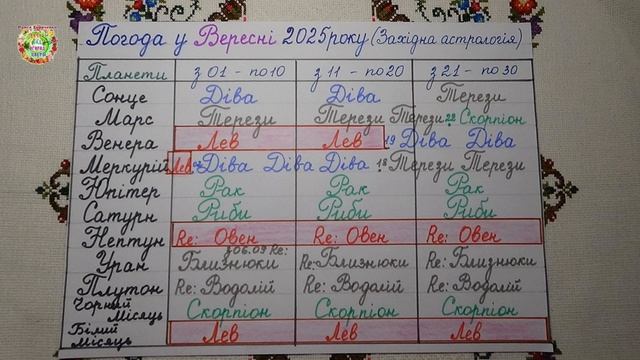 Погода у Вересні 2025року (Західна астрологія)
Планети з 01 - по10 з 11 - по20 з 21 - по 30
Сонце Діва Діва Терези
Марс Терези Терези Терези 22 Скорпіон
Венера Лев Лев 19 Діва Діва
Меркурій Лев Діва Діва Діва 18 Терези Терези
Юпітер Рак Рак Рак
Сатурн Риби Риби Риби
Нептун Re: Овен Re: Овен Re: Овен
з06.09 Re:
Уран Близнюки Re: Близнюки Re: Близнюки
Плутон Re: Водолій Re: Водолій Re: Водолій
Чорний
Місяць Скорпіон Скорпіон Скорпіон
Білий
Місяць Лев Лев Лев